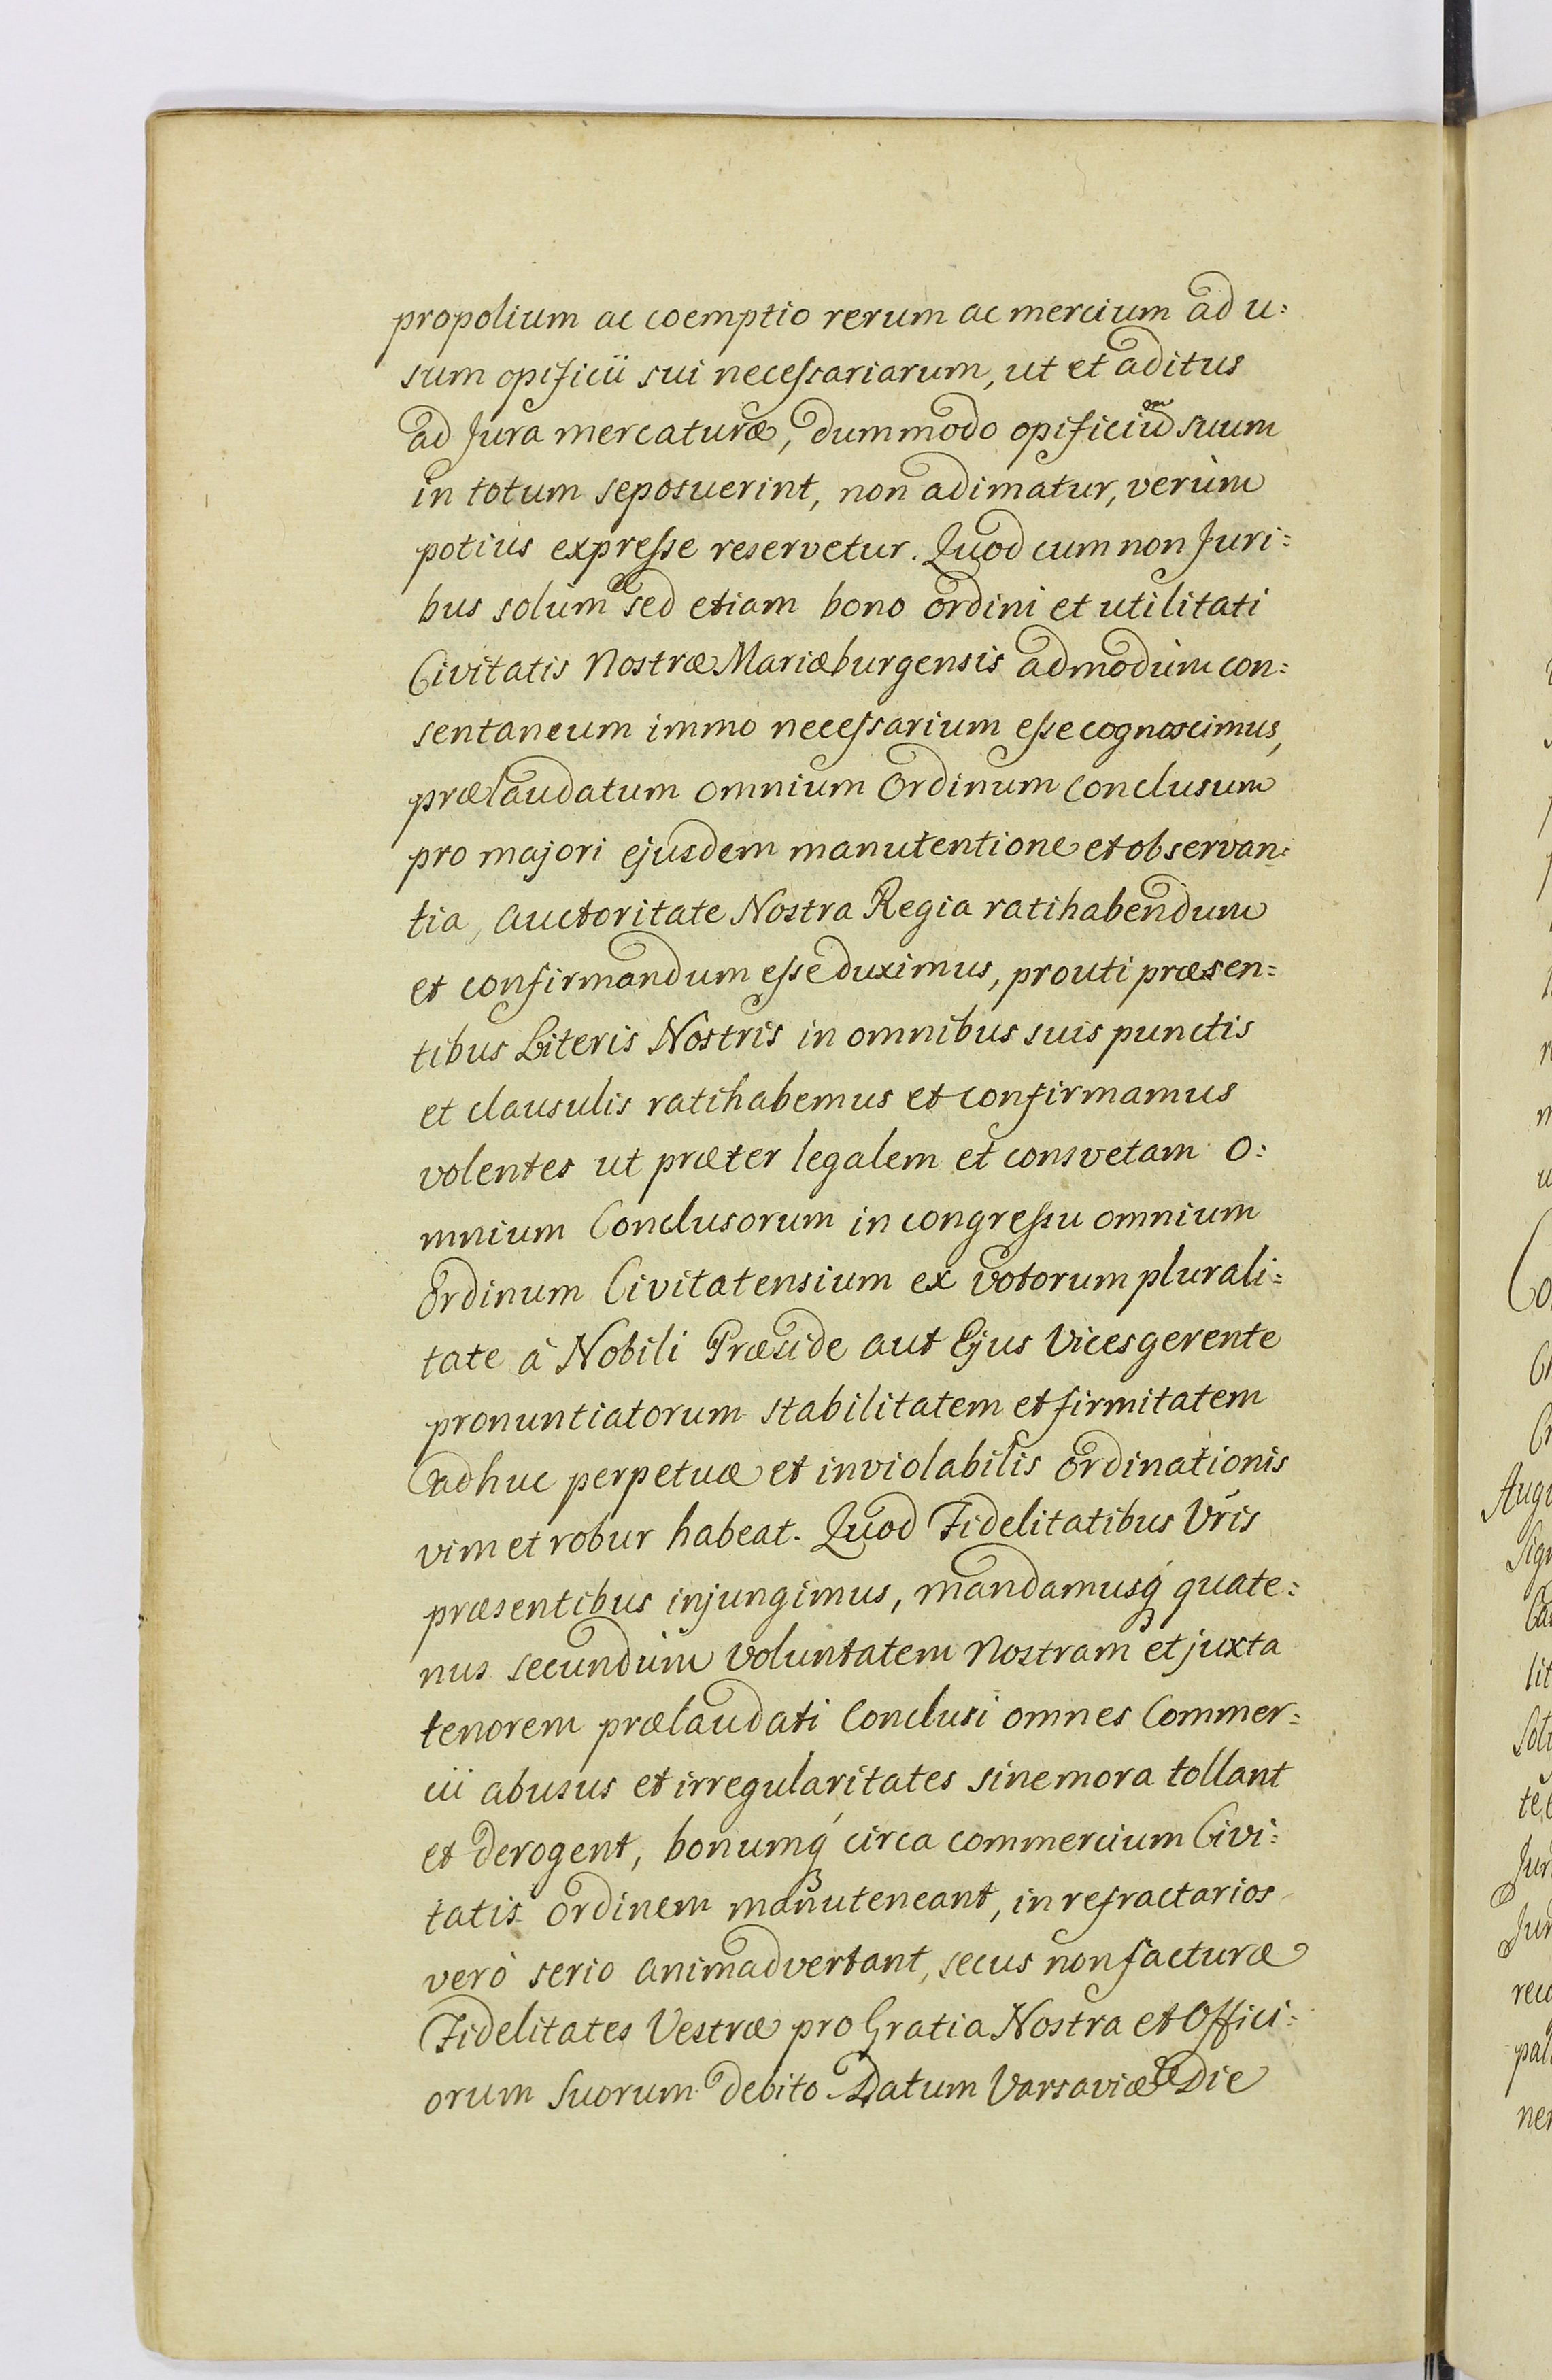 propolium ac coemptio rerum ac mercium ad u:
sum opificii sui necessariarum, ut et aditus
ad Jura mercaturæ, dummodo opificiũ suum
in totum seposuerint, non adimatur, verùm
potiùs expresse reservetur. Quod cum non Juri:
bus solum sed etiam bono ordini et utilitati
Civitatis Nostræ Mariæburgensis admodùm con:
sentaneum immò necessarium esse cognoscimus,
prælaudatum omnium Ordinum Conclusum
pro majori ejusdem manutentione et observan:
tia, Auctoritate Nostra Regia ratihabendum
et confirmandum esse duximus, prouti præsen:
tibus Literis Nostris in omnibus suis punctis
et clausulis ratihabemus et confirmamus
volentes ut præter legalem et consvetam O:
mnium Conclusorum in congressu omnium
Ordinum Civitatensium ex votorum plurali:
tate à Nobili Præside aut Ejus Vicesgerente
pronuntiatorum stabilitatem et firmitatem
adhuc perpetuæ et inviolabilis ordinationis
vim et robur habeat. Quod Fidelitatibus Vr̃is
præsentibus injungimus, mandamusq́ quate:
nus secundùm voluntatem Nostram et juxta
tenorem prælaudati Conclusi omnes Commer:
cii abusus et irregularitates sine mora tollant
et derogent, bonumq́ circa commercium Civi:
tatis ordinem manuteneant, in refractarios
verò serio animadvertant, secus non facturæ
Fidelitates Vestræ pro Gratia Nostra et Offici:
orum Suorum debito. Datum Varsaviæ Die